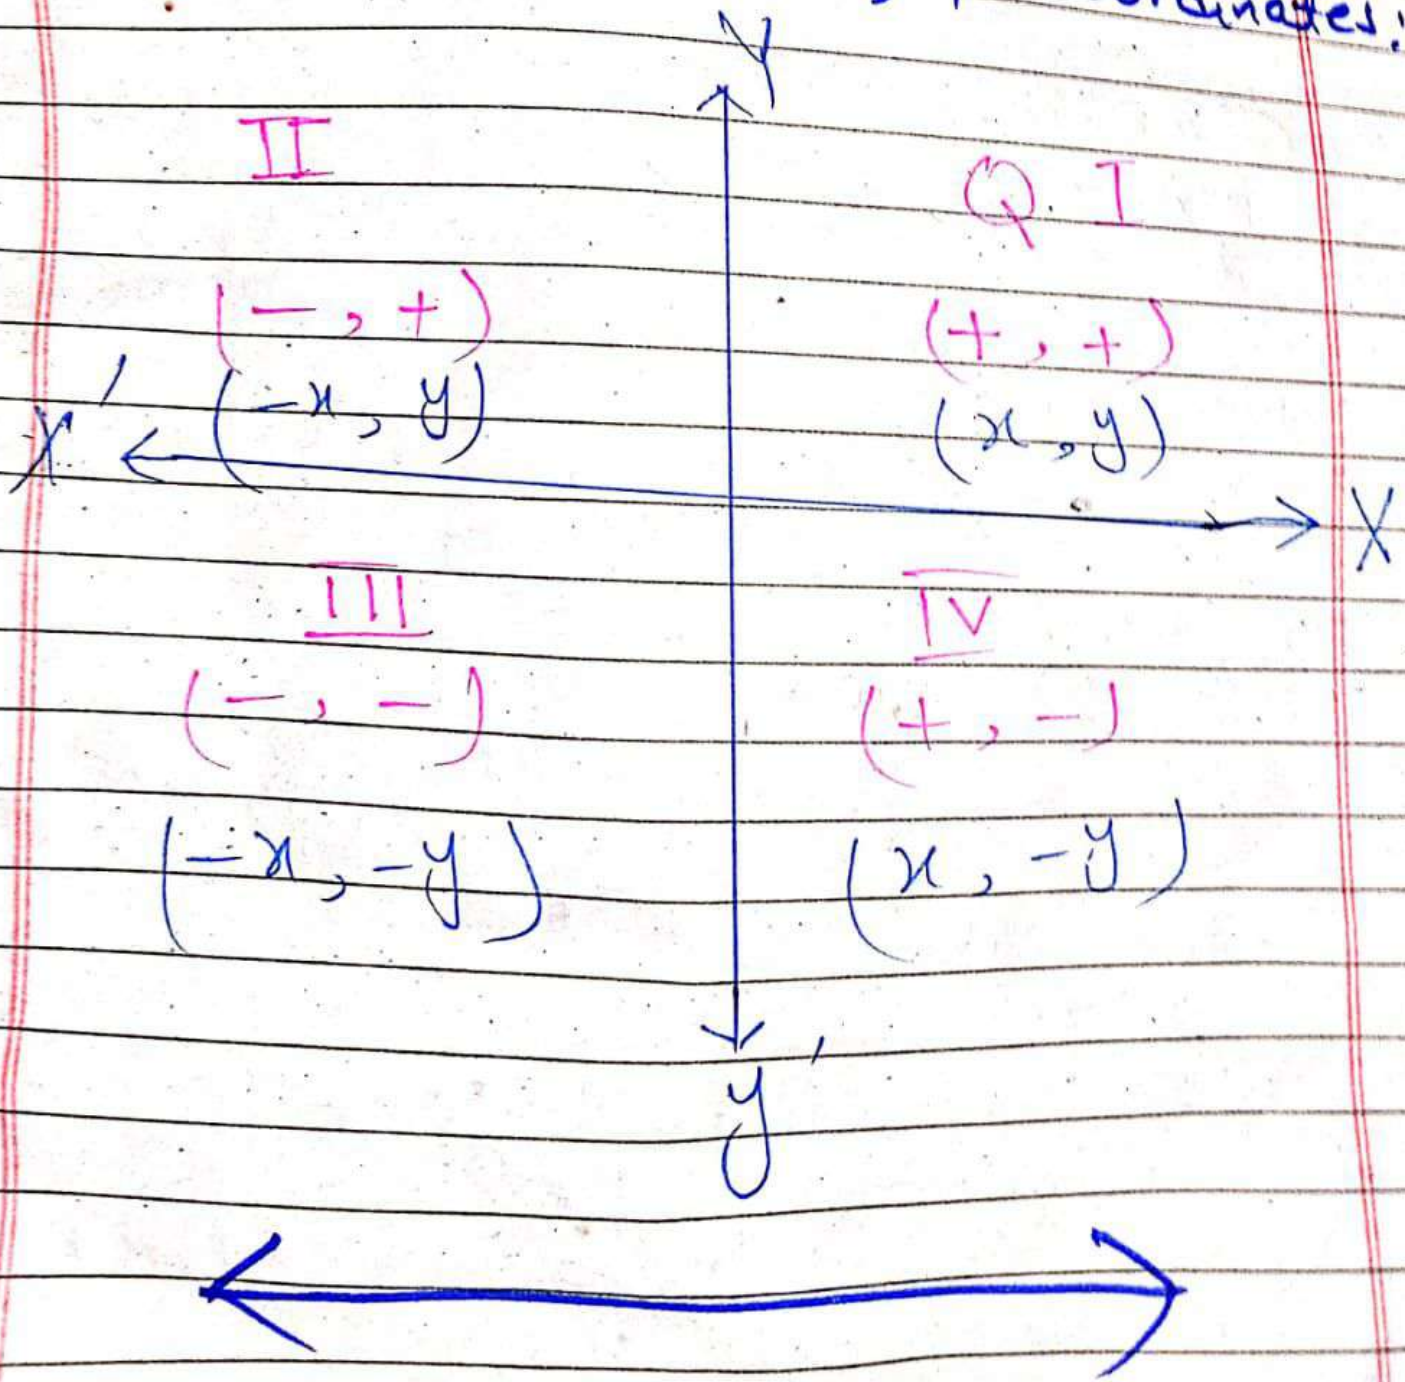 Y
II
Q. I
(-, +)
(+, +)
(-x, y)
(x, y)
X'
X
III
IV
(-, -)
(+, -)
(-x, -y)
(x, -y)
y'